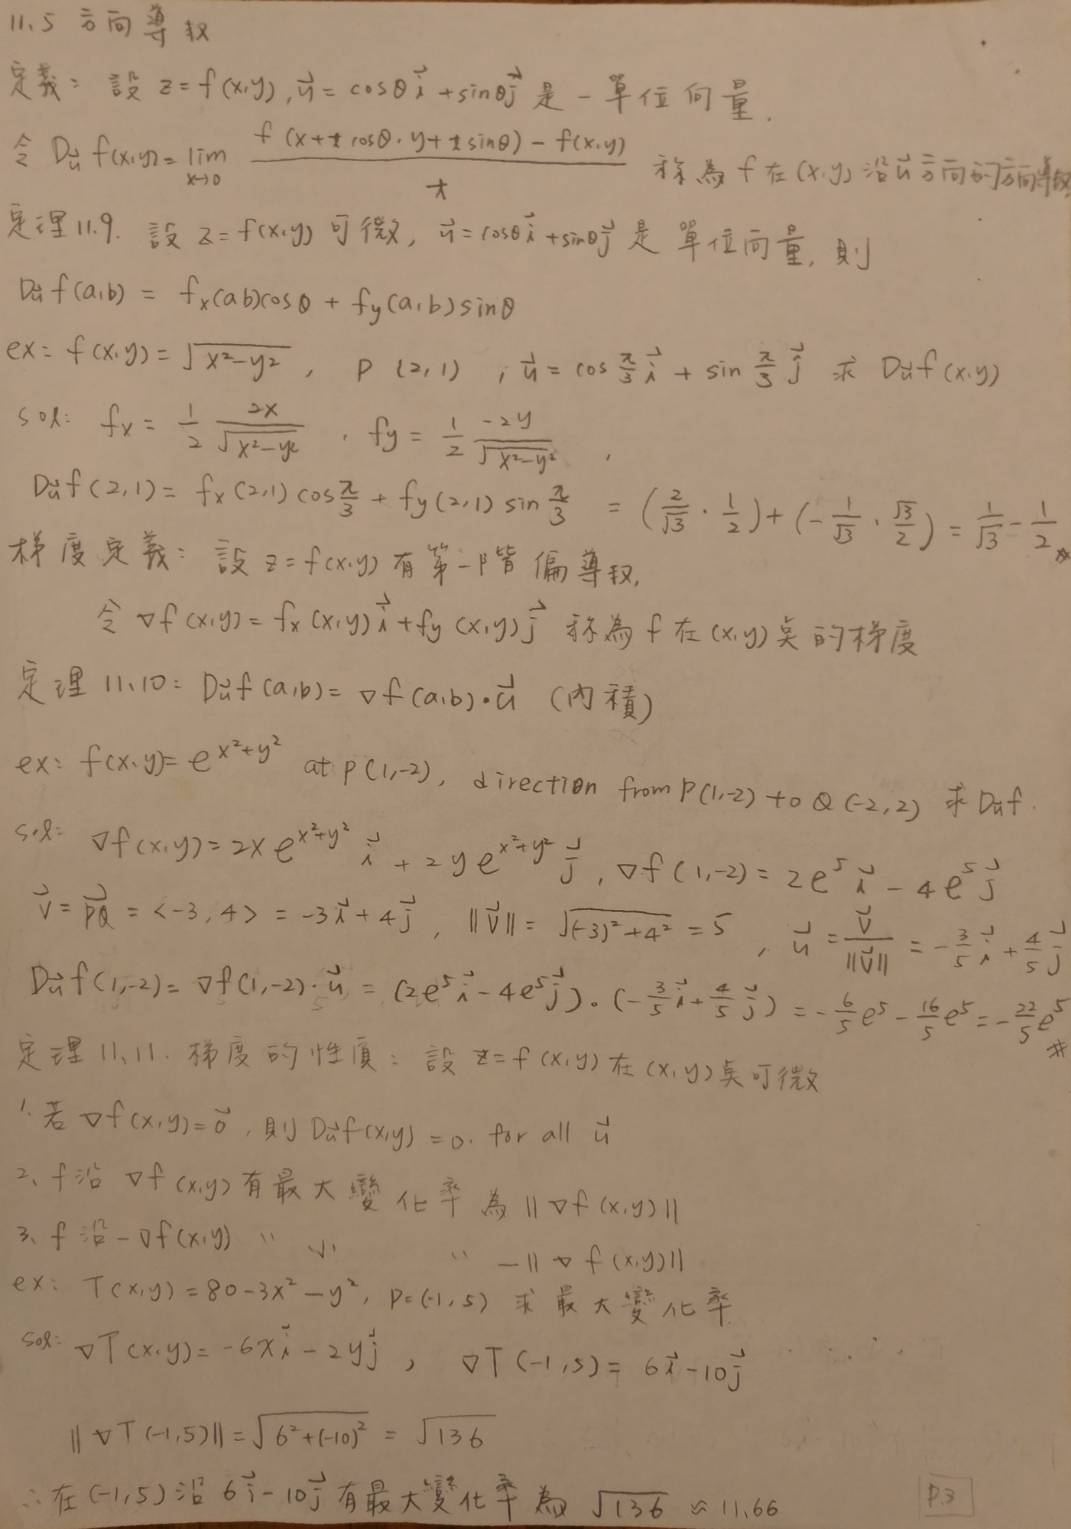 11.5 方向導数
定義: 設 z=f(x,y), u⃗=cosθi⃗+sinθj⃗ 是一單位向量.
令 Du⃗ f(x,y)=lim x→0 f(x+t cosθ, y+t sinθ)-f(x,y) / t 称為 f 在(x,y)沿u⃗方向的方向導数
定理11.9. 設 z=f(x,y)可微, u⃗=cosθi⃗+sinθj⃗ 是單位向量, 則
Du⃗f(a,b) = fx(a,b)cosθ + fy(a,b)sinθ
ex: f(x,y)=√(x²-y²), P(2,1), u⃗=cos π/3 i⃗ + sin π/3 j⃗ 求 Du⃗f(x,y)
sol: fx = 1/2 2x/√(x²-y²), fy = 1/2 -2y/√(x²-y²),
Du⃗f(2,1)= fx(2,1)cos π/3 + fy(2,1) sin π/3 = (2/√3 · 1/2)+(-1/√3 · √3/2) = 1/√3 - 1/2 #
梯度定義: 設 z=f(x,y)有第一階偏導数,
令 ∇f(x,y)=fx(x,y)i⃗+fy(x,y)j⃗ 称為 f 在(x,y)奌的梯度
定理 11.10: Du⃗f(a,b)= ∇f(a,b)·u⃗ (內積)
ex: f(x,y)=e^(x²+y²) at P(1,-2), direction from P(1,-2) to Q(-2,2) 求 Du⃗f.
sol: ∇f(x,y)=2xe^(x²+y²) i⃗ + 2ye^(x²+y²) j⃗, ∇f(1,-2)= 2e⁵i⃗ - 4e⁵j⃗
v⃗=PQ⃗ = <-3,4> = -3i⃗+4j⃗, ||v⃗|| = √((-3)²+4²) = 5, u⃗ = v⃗/||v⃗|| = -3/5 i⃗ + 4/5 j⃗
Du⃗f(1,-2)= ∇f(1,-2)·u⃗ = (2e⁵i⃗-4e⁵j⃗)·(-3/5 i⃗+4/5 j⃗) = -6/5 e⁵ - 16/5 e⁵ = -22/5 e⁵ #
定理 11.11. 梯度的性质: 設 z=f(x,y)在(x,y)奌可微
1. 若∇f(x,y)=0⃗, 則 Du⃗f(x,y)=0. for all u⃗
2、f沿 ∇f(x,y)有最大變化率為 ||∇f(x,y)||
3、f沿 -∇f(x,y) 〃 小 〃 -||∇f(x,y)||
ex: T(x,y)=80-3x²-y², P=(-1,5) 求最大變化率
sol: ∇T(x,y)= -6xi⃗-2yj⃗, ∇T(-1,5)= 6i⃗-10j⃗
||∇T(-1,5)||=√(6²+(-10)²) = √136
∴在(-1,5)沿 6i⃗-10j⃗ 有最大變化率為 √136 ≈ 11.66
P.3